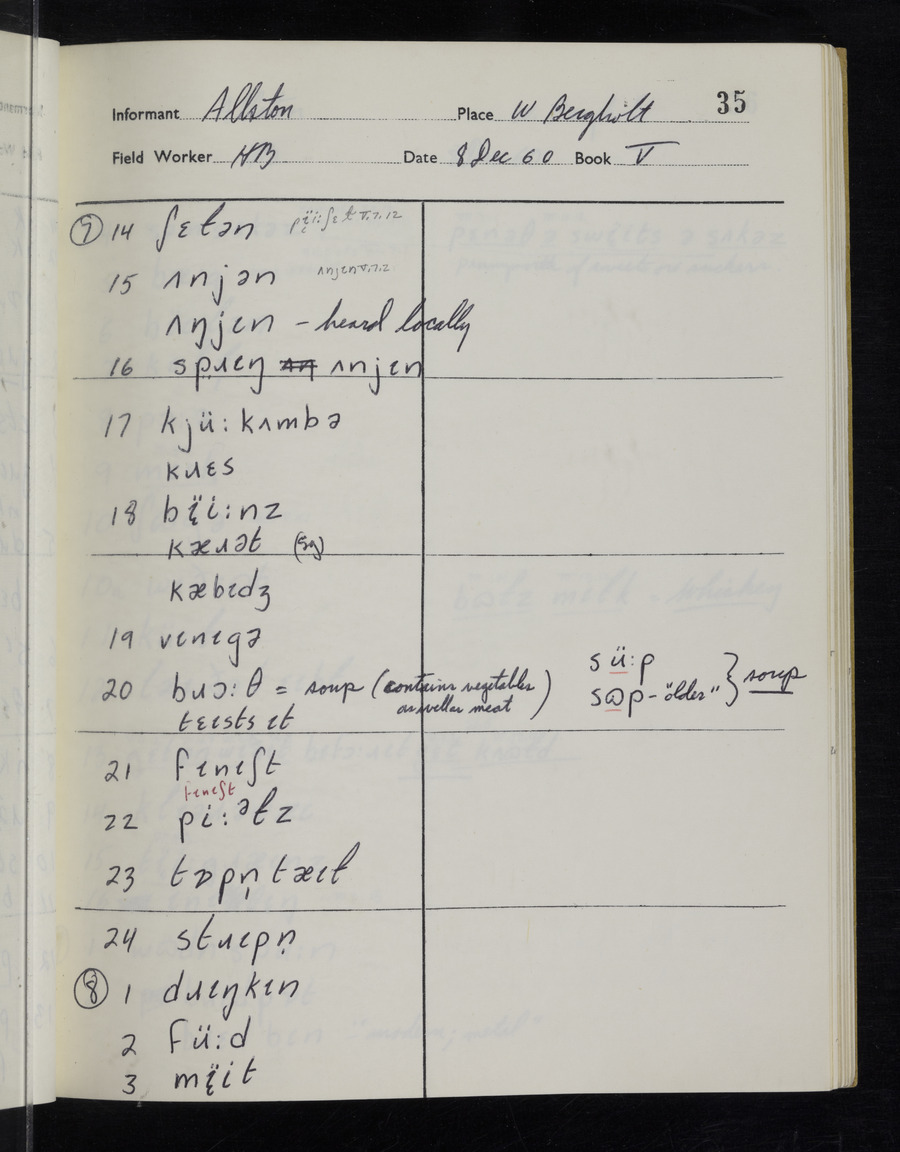 Informant Allston Place W Bergholt 35
Field Worker HB Date 8 Dec 60 Book V
⑦ 14 ʃɛlən
15 ʌnjən ʌnjɪn V.7.2
ʌŋjɪn – heard locally
16 spɹɪŋ ʌnjɪn
17 kjü:kʌmbə
kɹɛs
18 bï̞i:nz
kæɹət (sg)
kæbɪdʒ
19 vɪnɪgə
20 bɹɔ:θ = soup (contains vegetables as well as meat) sü:p
tɛɪsts ɪt sɷp – "older" } soup
21 fɪnɪʃt
fɪnɪʃt
22 pi:ᵊlz
23 tɒpn̩ tæɪl
24 stɹɪpn̩
⑧ 1 dɹɪŋkɪn
2 fü:d
3 mï̞it